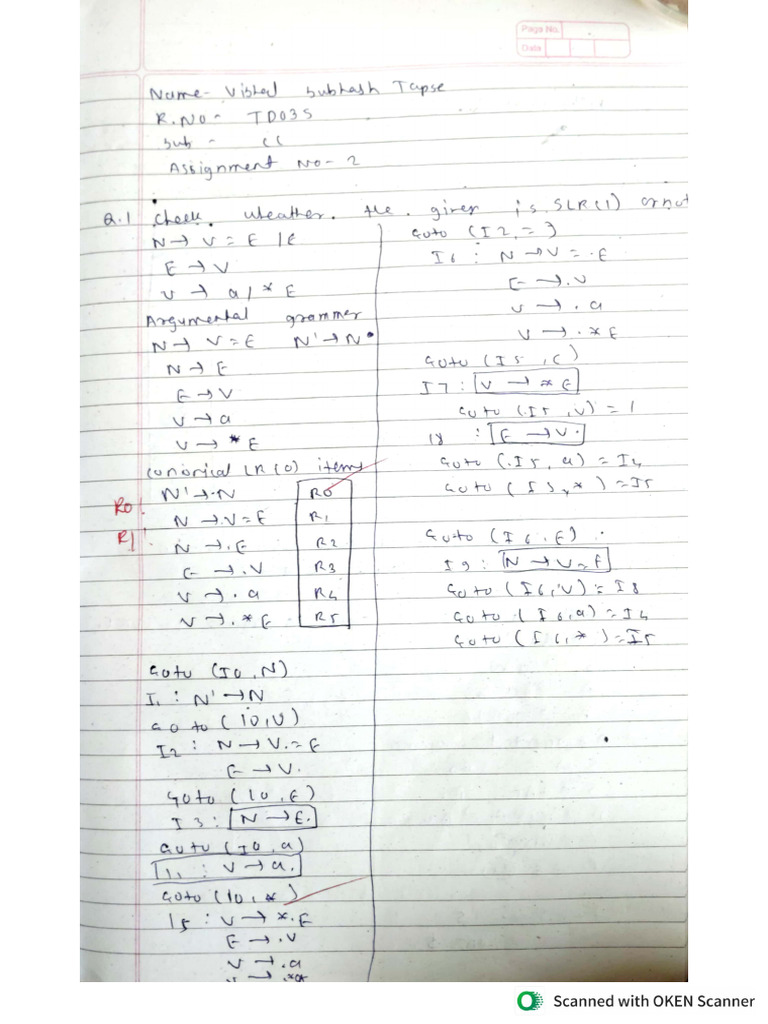 Page No.
Date
Name- Vishal Subhash Tapse
R.NO- TD035
Sub - CC
Assignment NO- 2
Q.1 Check wheather the given is SLR(1) or not
N → V = E | E
E → V
V → a | * E
Argumental grammer
N → V = E N' → N
N → E
E → V
V → a
V → * E
Canonical LR(0) items
N' → .N R0
R0!
N → .V = E R1
R1!
N → .E R2
E → .V R3
V → .a R4
V → .* E R5
Goto (I0, N)
I1 : N' → N
Goto (I0, V)
I2 : N → V. = E
E → V.
Goto (I0, E)
I3 : N → E.
Goto (I0, a)
V → a.
Goto (I0, *)
I5 : V → *.E
E → .V
V → .a
V → .*
Goto (I2, = )
I6 : N → V = .E
E → .V
V → .a
V → .* E
Goto (I5, C)
I7 : V → * E
Goto (.I5, V) = 1
I8 : E → V.
Goto (.I5, a) = I4
Goto (I5, *) = I5
Goto (I6, E)
I9 : N → V = E
Goto (I6, V) = I8
Goto (I6, a) = I4
Goto (I6, *) = I5
Scanned with OKEN Scanner